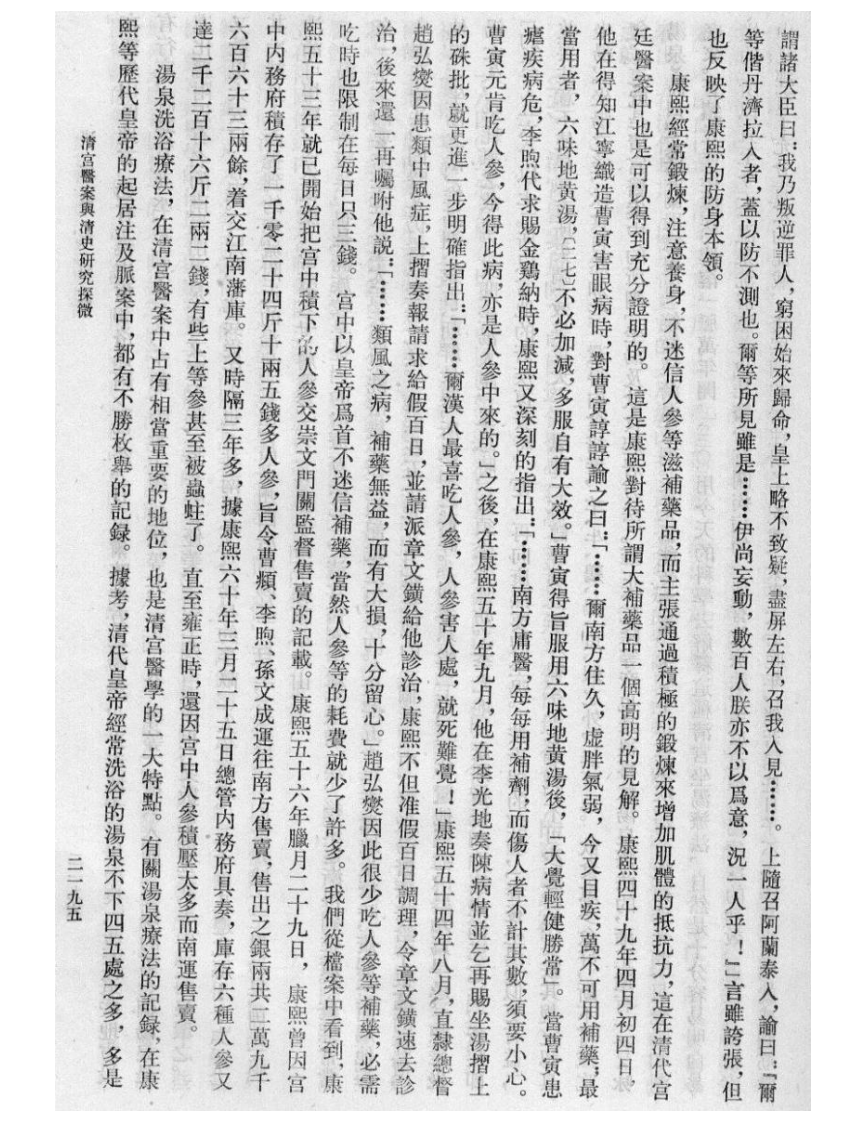 謂諸大臣曰：『我乃叛逆罪人，窮困始來歸命，皇上略不致疑，盡屏左右，召我入見……。上隨召阿蘭泰入，諭曰：『爾
等偕丹濟拉入者，蓋以防不測也。爾等所見雖是……伊尚妄動，數百人朕亦不以爲意，況一人乎！』」言雖誇張，但
也反映了康熙的防身本領。
康熙經常鍛煉，注意養身，不迷信人參等滋補藥品，而主張通過積極的鍛煉來增加肌體的抵抗力，這在清代宮
廷醫案中也是可以得到充分證明的。這是康熙對待所謂大補藥品一個高明的見解。康熙四十九年四月初四日，
他在得知江寧織造曹寅害眼病時，對曹寅諄諄諭之曰：「……爾南方住久，虛胖氣弱，今又目疾，萬不可用補藥；最
當用者，六味地黄湯，〔二七〕不必加減，多服自有大效。」曹寅得旨服用六味地黄湯後，「大覺輕健勝常」。當曹寅患
瘧疾病危，李煦代求賜金鷄納時，康熙又深刻的指出：「……南方庸醫，每每用補劑，而傷人者不計其數，須要小心。
曹寅元肯吃人參，今得此病，亦是人參中來的。」之後，在康熙五十年九月，他在李光地奏陳病情並乞再賜坐湯摺上
的硃批，就更進一步明確指出：「……爾漢人最喜吃人參，人參害人處，就死難覺！」康熙五十四年八月，直隸總督
趙弘燮因患類中風症，上摺奏報請求給假百日，並請派章文鐄給他診治，康熙不但准假百日調理，令章文鐄速去診
治，後來還一再囑咐他説：「……類風之病，補藥無益，而有大損，十分留心。」趙弘燮因此很少吃人參等補藥，必需
吃時也限制在每日只三錢。宮中以皇帝爲首不迷信補藥，當然人參等的耗費就少了許多。我們從檔案中看到，康
熙五十三年就已開始把宮中積下的人參交崇文門關監督售賣的記載。康熙五十六年臘月二十九日，康熙曾因宮
中内務府積存了一千零二十四斤十兩五錢多人參，旨令曹頫、李煦、孫文成運往南方售賣，售出之銀兩共二萬九千
六百六十三兩餘，着交江南藩庫。又時隔三年多，據康熙六十年三月二十五日總管内務府具奏，庫存六種人參又
達二千二百十六斤二兩二錢，有些上等參甚至被蟲蛀了。直至雍正時，還因宮中人參積壓太多而南運售賣。
湯泉洗浴療法，在清宮醫案中占有相當重要的地位，也是清宮醫學的一大特點。有關湯泉療法的記録，在康
熙等歷代皇帝的起居注及脈案中，都有不勝枚舉的記録。據考，清代皇帝經常洗浴的湯泉不下四五處之多，多是
清宮醫案與清史研究探微
二一九五